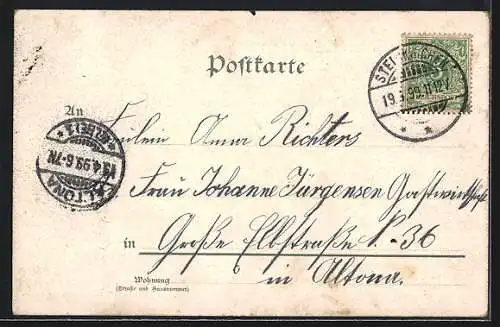 Postkarte
An
Fräulein Anna Richters
Frau Johanne Jürgensen Gastwirtschaft
in Große Elbstraße No. 36
in Altona.
Wohnung
(Straße und Hausnummer)
19. 99. 11-12V
ALTONA
4.99.6-7N.